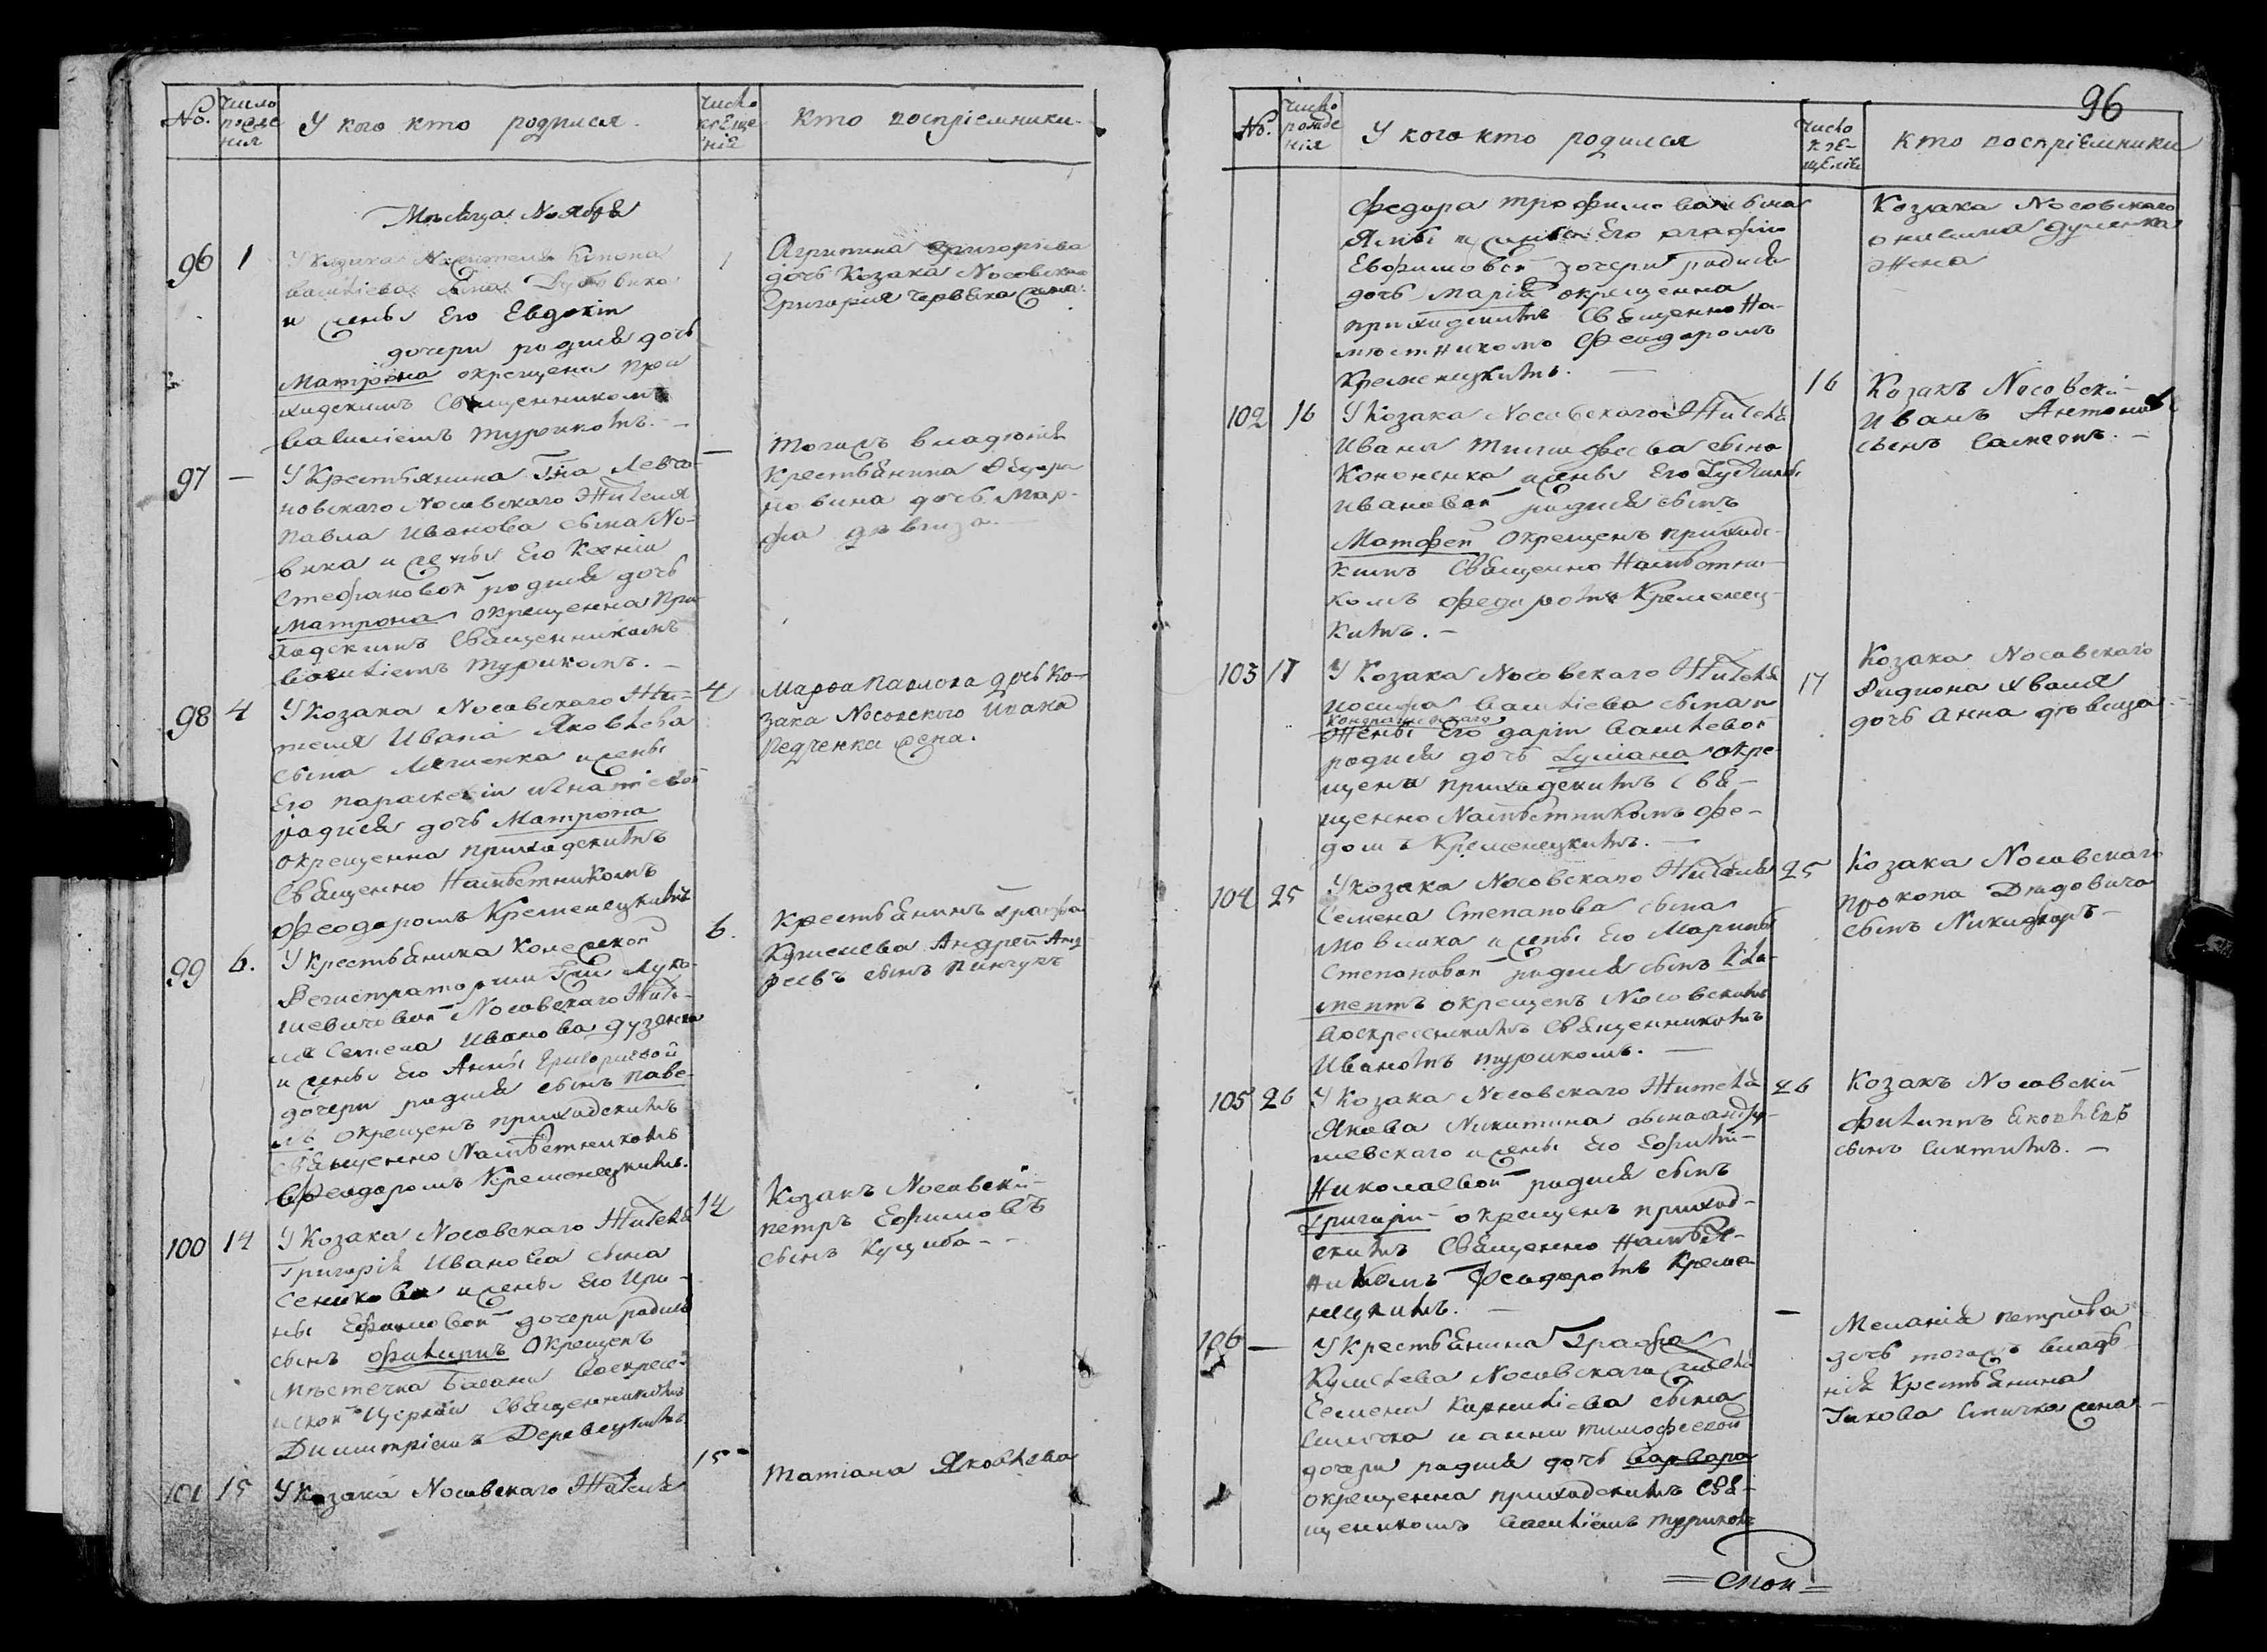 No.
число
рожде
нія
У кого кто родился.
число
креще
нія
кто воспріемники.
Мѣсяца Ноября
96
1
У козака Жителя Конона
Василіева сына
и жены Его Евдокіи
дочери родися дочь
Матрона окрещена при
ходскимъ Священникомъ
Василіемъ Турикомъ.
1
Агрипина Григоріева
дочь Козака Носовскаго
Григорія Червяка жена.
97
—
У Крестьянина Гна
новскаго Носовскаго Жителя
Павла Иванова сына Но-
вика и жены Его Ксеніи
Стефановой родися дочь
Матрона окрещенна при
ходскимъ Священникомъ
Василіемъ Турикомъ. —
—
тогожъ владѣнія
Крестьянина
новина дочь Мар-
фа дѣвица. —
98
4
У Козака Носовскаго Жи-
теля Ивана Яковлева
сына и жены
Его Параскевіи Игнатіевой
родися дочь Матрона
окрещенна приходскимъ
Священно Намѣстникомъ
Феодоромъ Кременецкимъ
4
Марфа Павлова дочь Ко-
зака Носовского Ивана
жена.
99
6.
У Крестьянина Колежской
Регистраторши Гжи Лука-
шевичовой Носовскаго Жите-
ля Семена Иванова
и жены Его Анны Григоріевой
дочери родися сынъ Паве-
лъ окрещенъ приходскимъ
Священно Намѣстникомъ
Феодоромъ Кременецкимъ.
6.
Крестьянинъ Графа
Кушелева Андрей Анд
реевъ сынъ Пинчукъ
100
14
У Козака Носовскаго Жителя
Григорія Иванова сына
Сенкова и жены Его Ири-
ны Ефимовой дочери родися
сынъ Филиппъ Окрещенъ
Мѣстечка Басани Воскресе-
нской Церкви Священникомъ
Димитріемъ
14
Козакъ Носовскій
Петръ Ефимовъ
сынъ Куциба - -
101
15
У Козака Носовскаго Жителя
15
Татіана Яковлева
96
No.
число
рожде
нія
У кого кто родился
число
кре-
щенія
кто воспріемники
Федора Трофимова сына
и жены Его Агафіи
Евфимовой дочери родися
дочь Марія окрещенна
приходскимъ Священно На-
мѣстникомъ Феодоромъ
Кременецкимъ. —
Козака Носовскаго
Онисима Думенка
Жена
102
16
У Козака Носовскаго Жителя
Ивана Тимофеева сына
Кононенка и жены Его Іулианы
Ивановой родися сынъ
Матфей окрещенъ приходс-
кимъ Священно Намѣстни-
комъ Федоромъ Кременец-
кимъ. —
16
Козакъ Носовскій
Иванъ Антоновъ
сынъ
103
17
У Козака Носовскаго Жителя
Іосифа Василіева сына и
Кондрашевскаго
Жены Его Даріи Василевой
родися дочь Іуліана окре-
щена приходскимъ Свя-
щенно Намѣстникомъ Фе-
домъ Кременецкимъ. —
17
Козака Носовскаго
Родиона Хваля
дочь Анна дѣвица
104
25
У козака Носовскаго Жителя
Семена Степанова сына
Мовлика и жены Его Марины
Степановой родися сынъ Кли-
ментъ окрещенъ Носовскимъ
Воскресенскимъ Священникомъ
Иваномъ Турикомъ. —
25
Козака Носовскаго
Прокопа Дядовича
сынъ Никифоръ —
105
26
У Козака Носовскаго Жителя
Якова Никитина сына Андру-
шевскаго и жены Его Ефиміи
Николаевой родися сынъ
Григорій окрещенъ приход-
скимъ Священно Намѣст-
никомъ Феодоромъ Креме
нецкимъ. —
26
Козакъ Носовскій
Филиппъ Яковлевъ
сынъ —
106
—
У Крестьянина Графа
Кушелева Носовскаго Жителя
Семена Корниліева сына
и Анни Тимофеевой
дочери родися дочь Варвара
окрещенна приходскимъ Свя-
щеникомъ Василіемъ Турикомъ
—
Меланія Петрова
дочь тогожъ владѣ
нія Крестьянина
Іякова жена —